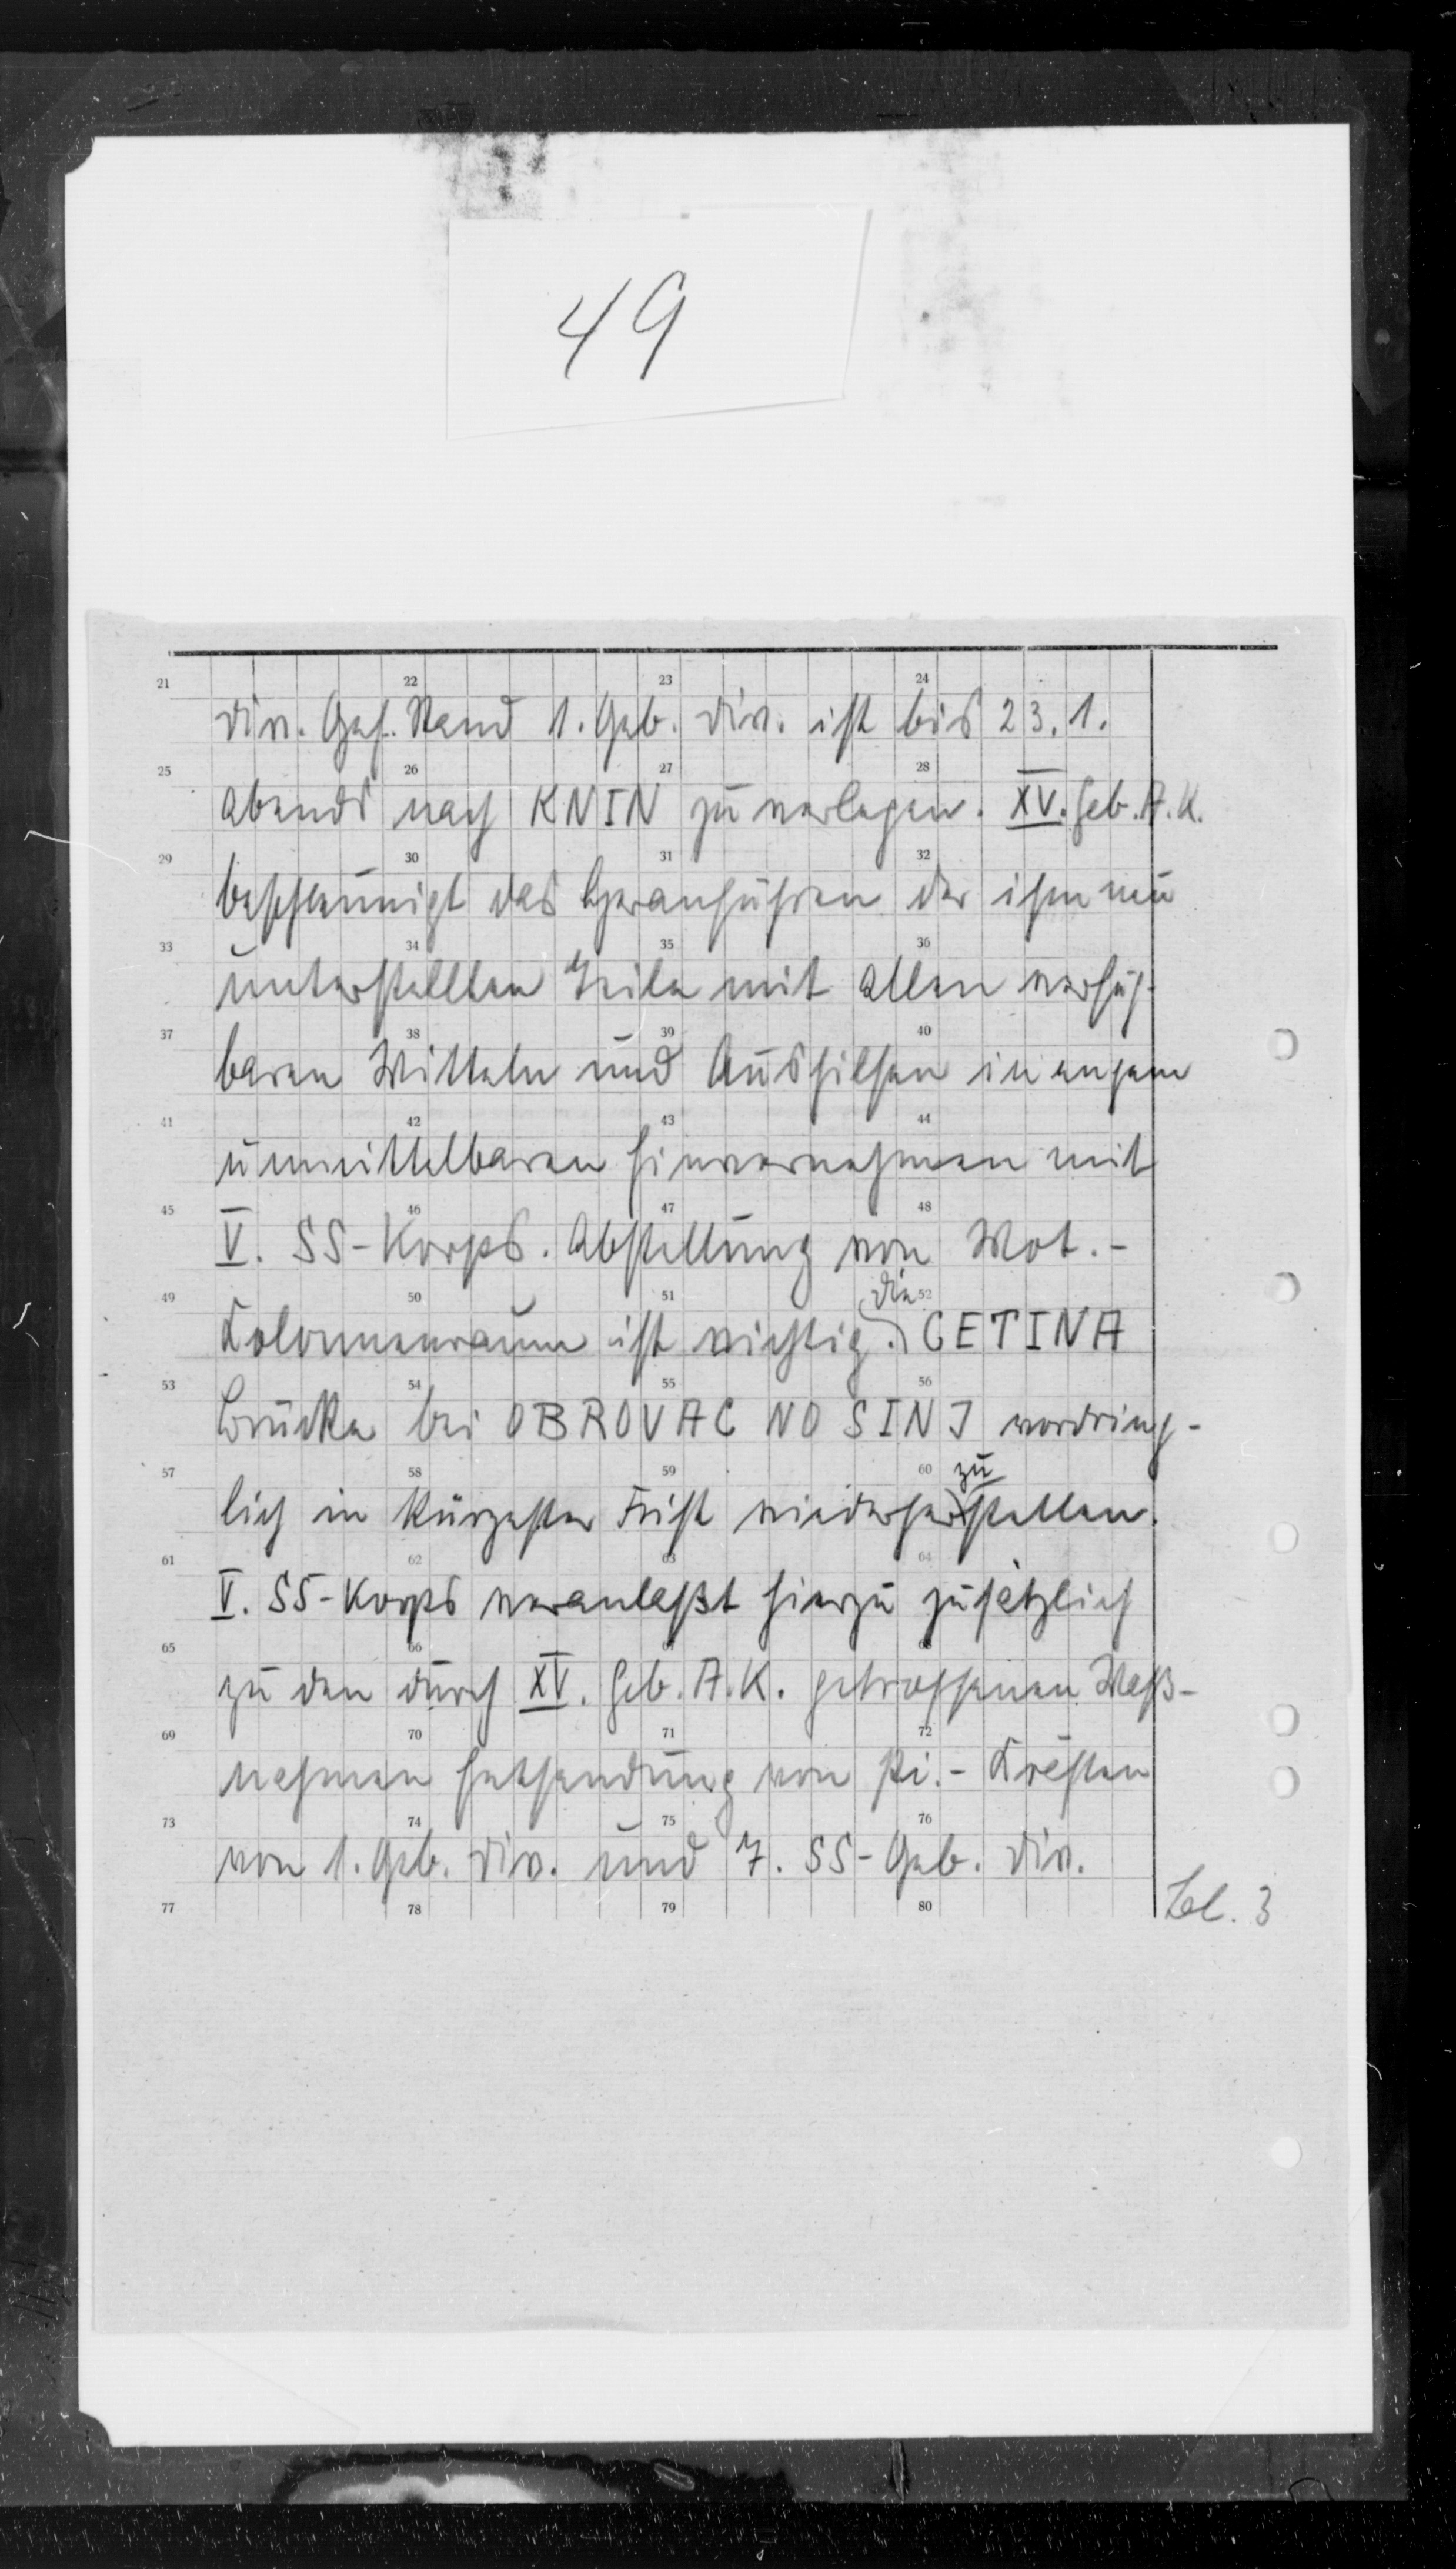 49
21 22 23 24
Div. Gef. Stand 1. Geb. Div. ist bis 23.1.
25 26 27 28
abends nach KNIN zu verlegen. XV. Geb. A.K.
29 30 31 32
beschleunigt das Heranführen der ihm neu
33 34 35 36
unterstellten Teile mit allen verfüg-
37 38 39 40
baren Mitteln und Aushilfen in engem
41 42 43 44
unmittelbaren Einvernehmen mit
45 46 47 48
V. SS-Korps. Abstellung von Mot.-
49 50 51 52
Kolonnenraum ist wichtig. die CETINA
53 54 55 56
Brücke bei OBROVAC NO SINJ vordring-
57 58 59 60
lich in kürzester Frist wiederherzustellen.
61 62 63 64
V. SS-Korps veranlaßt hierzu zusätzlich
65 66 67 68
zu den durch XV. Geb. A.K. getroffenen Maß-
69 70 71 72
nahmen Entsendung von Pi.-Kräften
73 74 75 76
von 1. Geb. Div. und 7. SS-Geb. Div.
77 78 79 80
Bl. 3